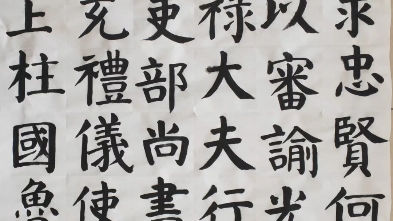 求忠賢何
以審諭光
祿大夫行
吏部尚書
充禮儀使
上柱國魯